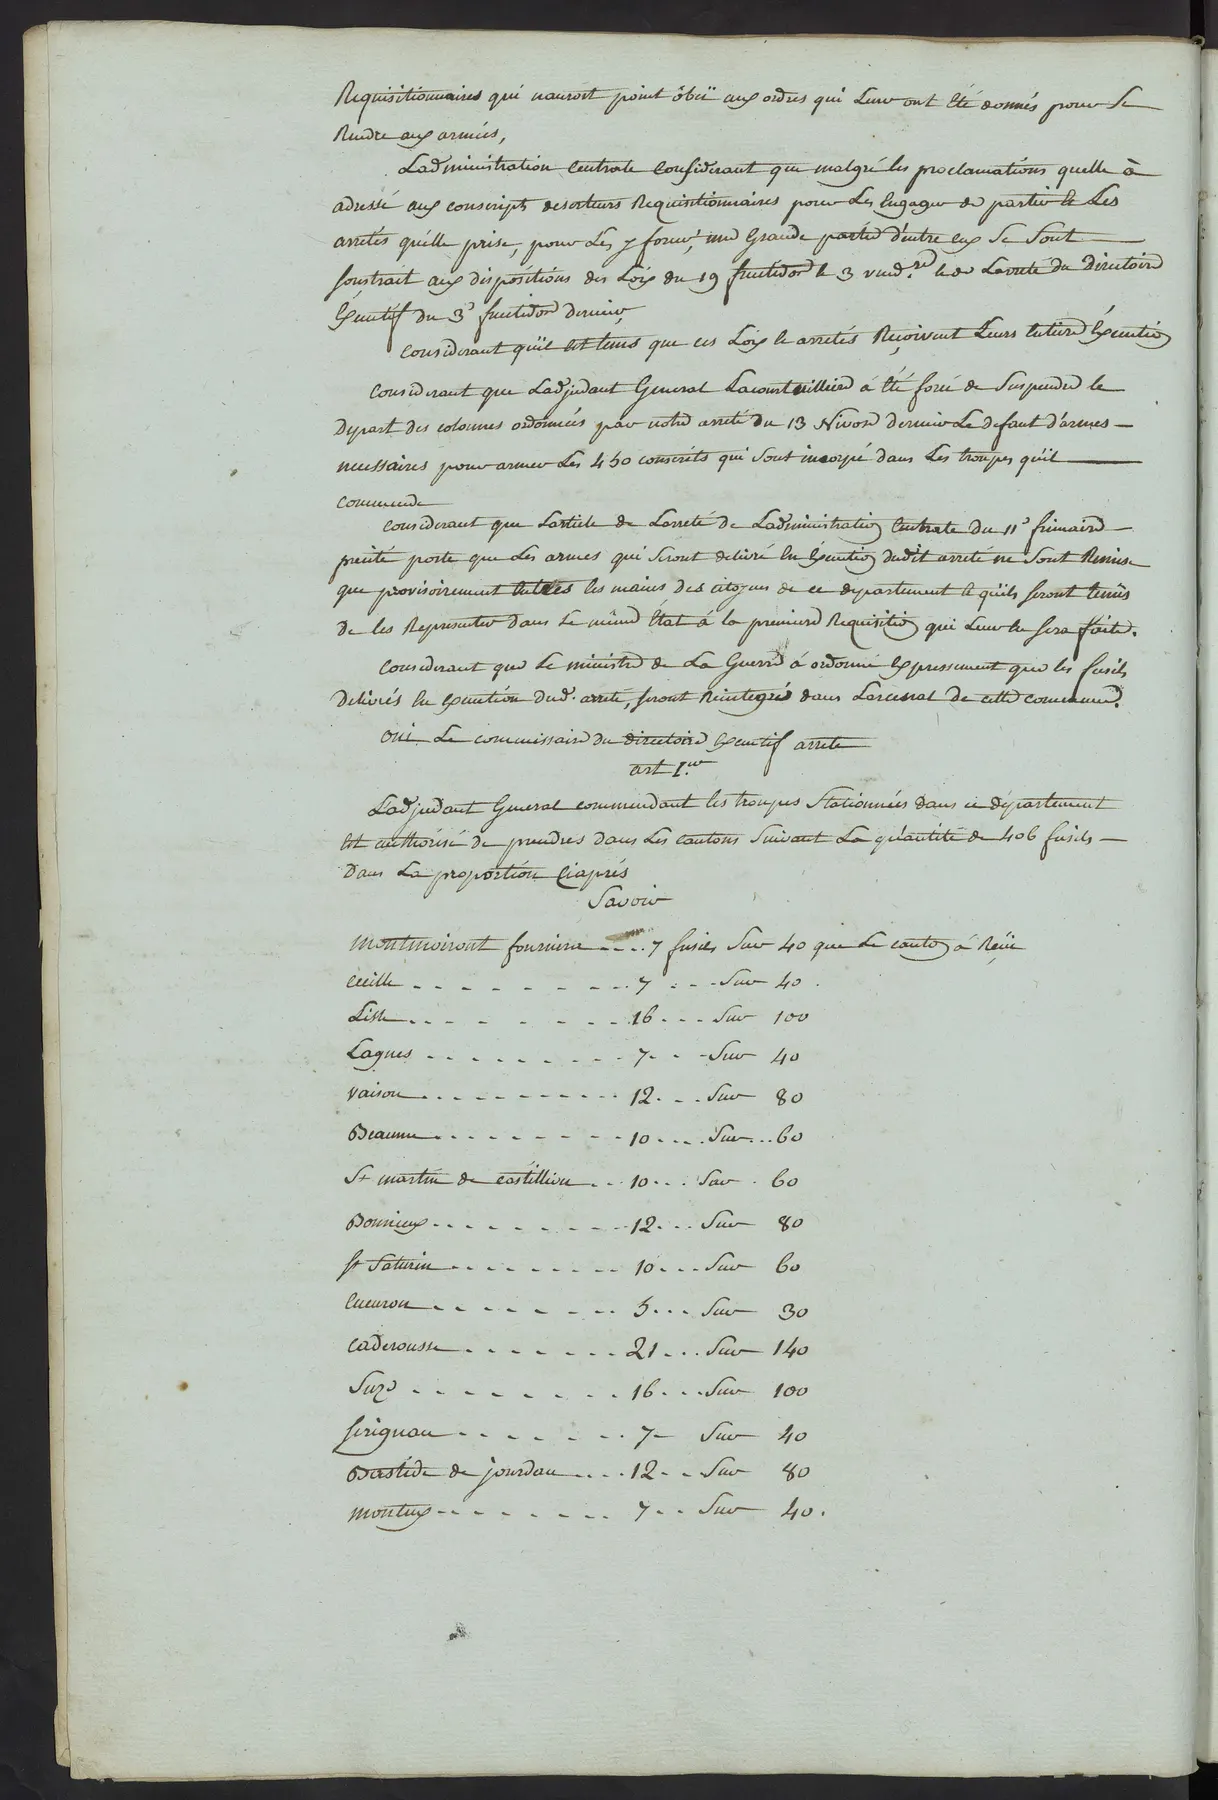 Requisitionnaires qui nauroit point ôbeii aux ordres qui Leur ont Eté donnés pour Se
Rendre aux armées,
Ladministration Centrale Considerant que malgré les proclamations quelle à
adressé aux conscripts deserteurs Requisitionnaires pour Les Engager de partir & Les
arretés qu'elle prise, pour Les y forcer, une Grande partie d'entre eux Se Sont
Soustrait aux dispositions des Loix du 19 fructidor & 3 vend.re & de Larreté du Directoire
Exécutif du 3e fructidor dernier
Considerant qu'il est tems que ces Loix & arretés Reçoivent Leurs Entiere Execution
Considerant que Ladjudant General Lacourt à Eté forcé de Suspendre le
Depart des colonnes ordonnées par notre arreté du 13 Nivose dernier Le defaut d'armes
necessaires pour armer Les 450 conscrits qui Sont incorpé dans Les troupes qu'il
Commande
Considerant que Larticle de Larreté de Ladministration Centrale du 11e frimaire
porte que Les armes qui Seront delivré En Execution dudit arreté ne Sont Remise
que provisoirement Entres les mains des citoyens de ce departement & qu'ils Seront tenus
de les Representer dans Le même Etat à la premiere Requisition qui Leur En Sera faite.
Considerant que Le ministre de La Guerre à ordonné Expressement que les fusils
Delivrés En execution dud. arreté, Seront Reintegré dans Larcenal de cette commune.
oui Le commissaire du directoire Executif arrete
art I.er
L'adjudant General commendant les troupes Stationnées dans ce département
Est authorisé de prendres dans Les cantons Suivant La quantité de 406 fusils
Dans La proportion Ciaprés
Savoir
Montmoiront fournira - - . . 7 fusils Sur 40 que Le canton à Reçu
Ceille . - - - - - - - . 7 - - - Sur 40.
Lisle . . - - - - - - . 16 - - - Sur 100
Lagnes - - - - - - - - . 7 - - - Sur 40
Vaison . - - - - - - - - 12 . - - Sur 80
Beaume . - - - - - - - 10 - - . Sur . . . 60
St martin de castillion . - 10 - - . Sur . 60
Bonnieux . - - - - - - - 12 . . . Sur 80
St Saturin - - - - - - - - 10 - - - Sur 60
Cucuron - - - - - - - . 5 . . . Sur 30
Caderousse - - - - - - - 21 . . . Sur 140
Suze . - - - - - - - - 16 - - - Sur 100
Serignan - - - - - - - 7 - Sur 40
Bastide de jourdan - . . 12 - - Sur 80
Monteux - - - - - - . 7 - - Sur 40.